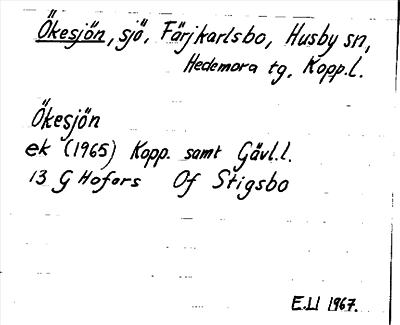 Ökesjön, sjö, Färjkarlsbo, Husby sn,
Hedemora tg, Kopp.l.
Ökesjön
ek (1965) Kopp. samt Gävl.l.
13 G Hofors Of Stigsbo
E.U 1967.